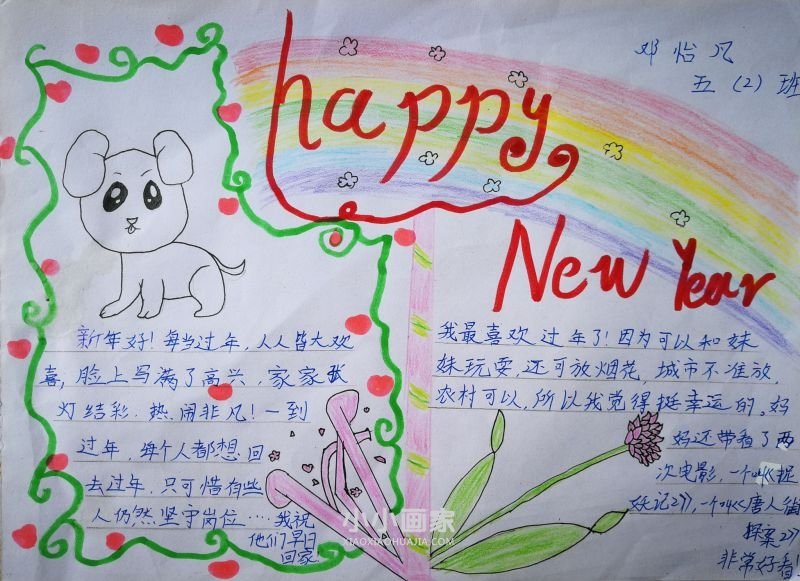 happy
New Year
邓怡凡
五(2)班
新年好!每当过年,人人皆大欢
喜,脸上写满了高兴,家家张
灯结彩.热闹非凡!一到
过年,每个人都想回
去过年.只可惜有些
人仍然坚守岗位……我祝
他们早日
回家.
我最喜欢过年了!因为可以和妹
妹玩耍,还可放烟花,城市不准放,
农村可以,所以我觉得挺幸运的.妈
妈还带看了两
次电影,一个叫《捉
妖记2》,一个叫《唐人街
探案2》
非常好看!
小小画家
XIAOXIAOHUAJIA.COM